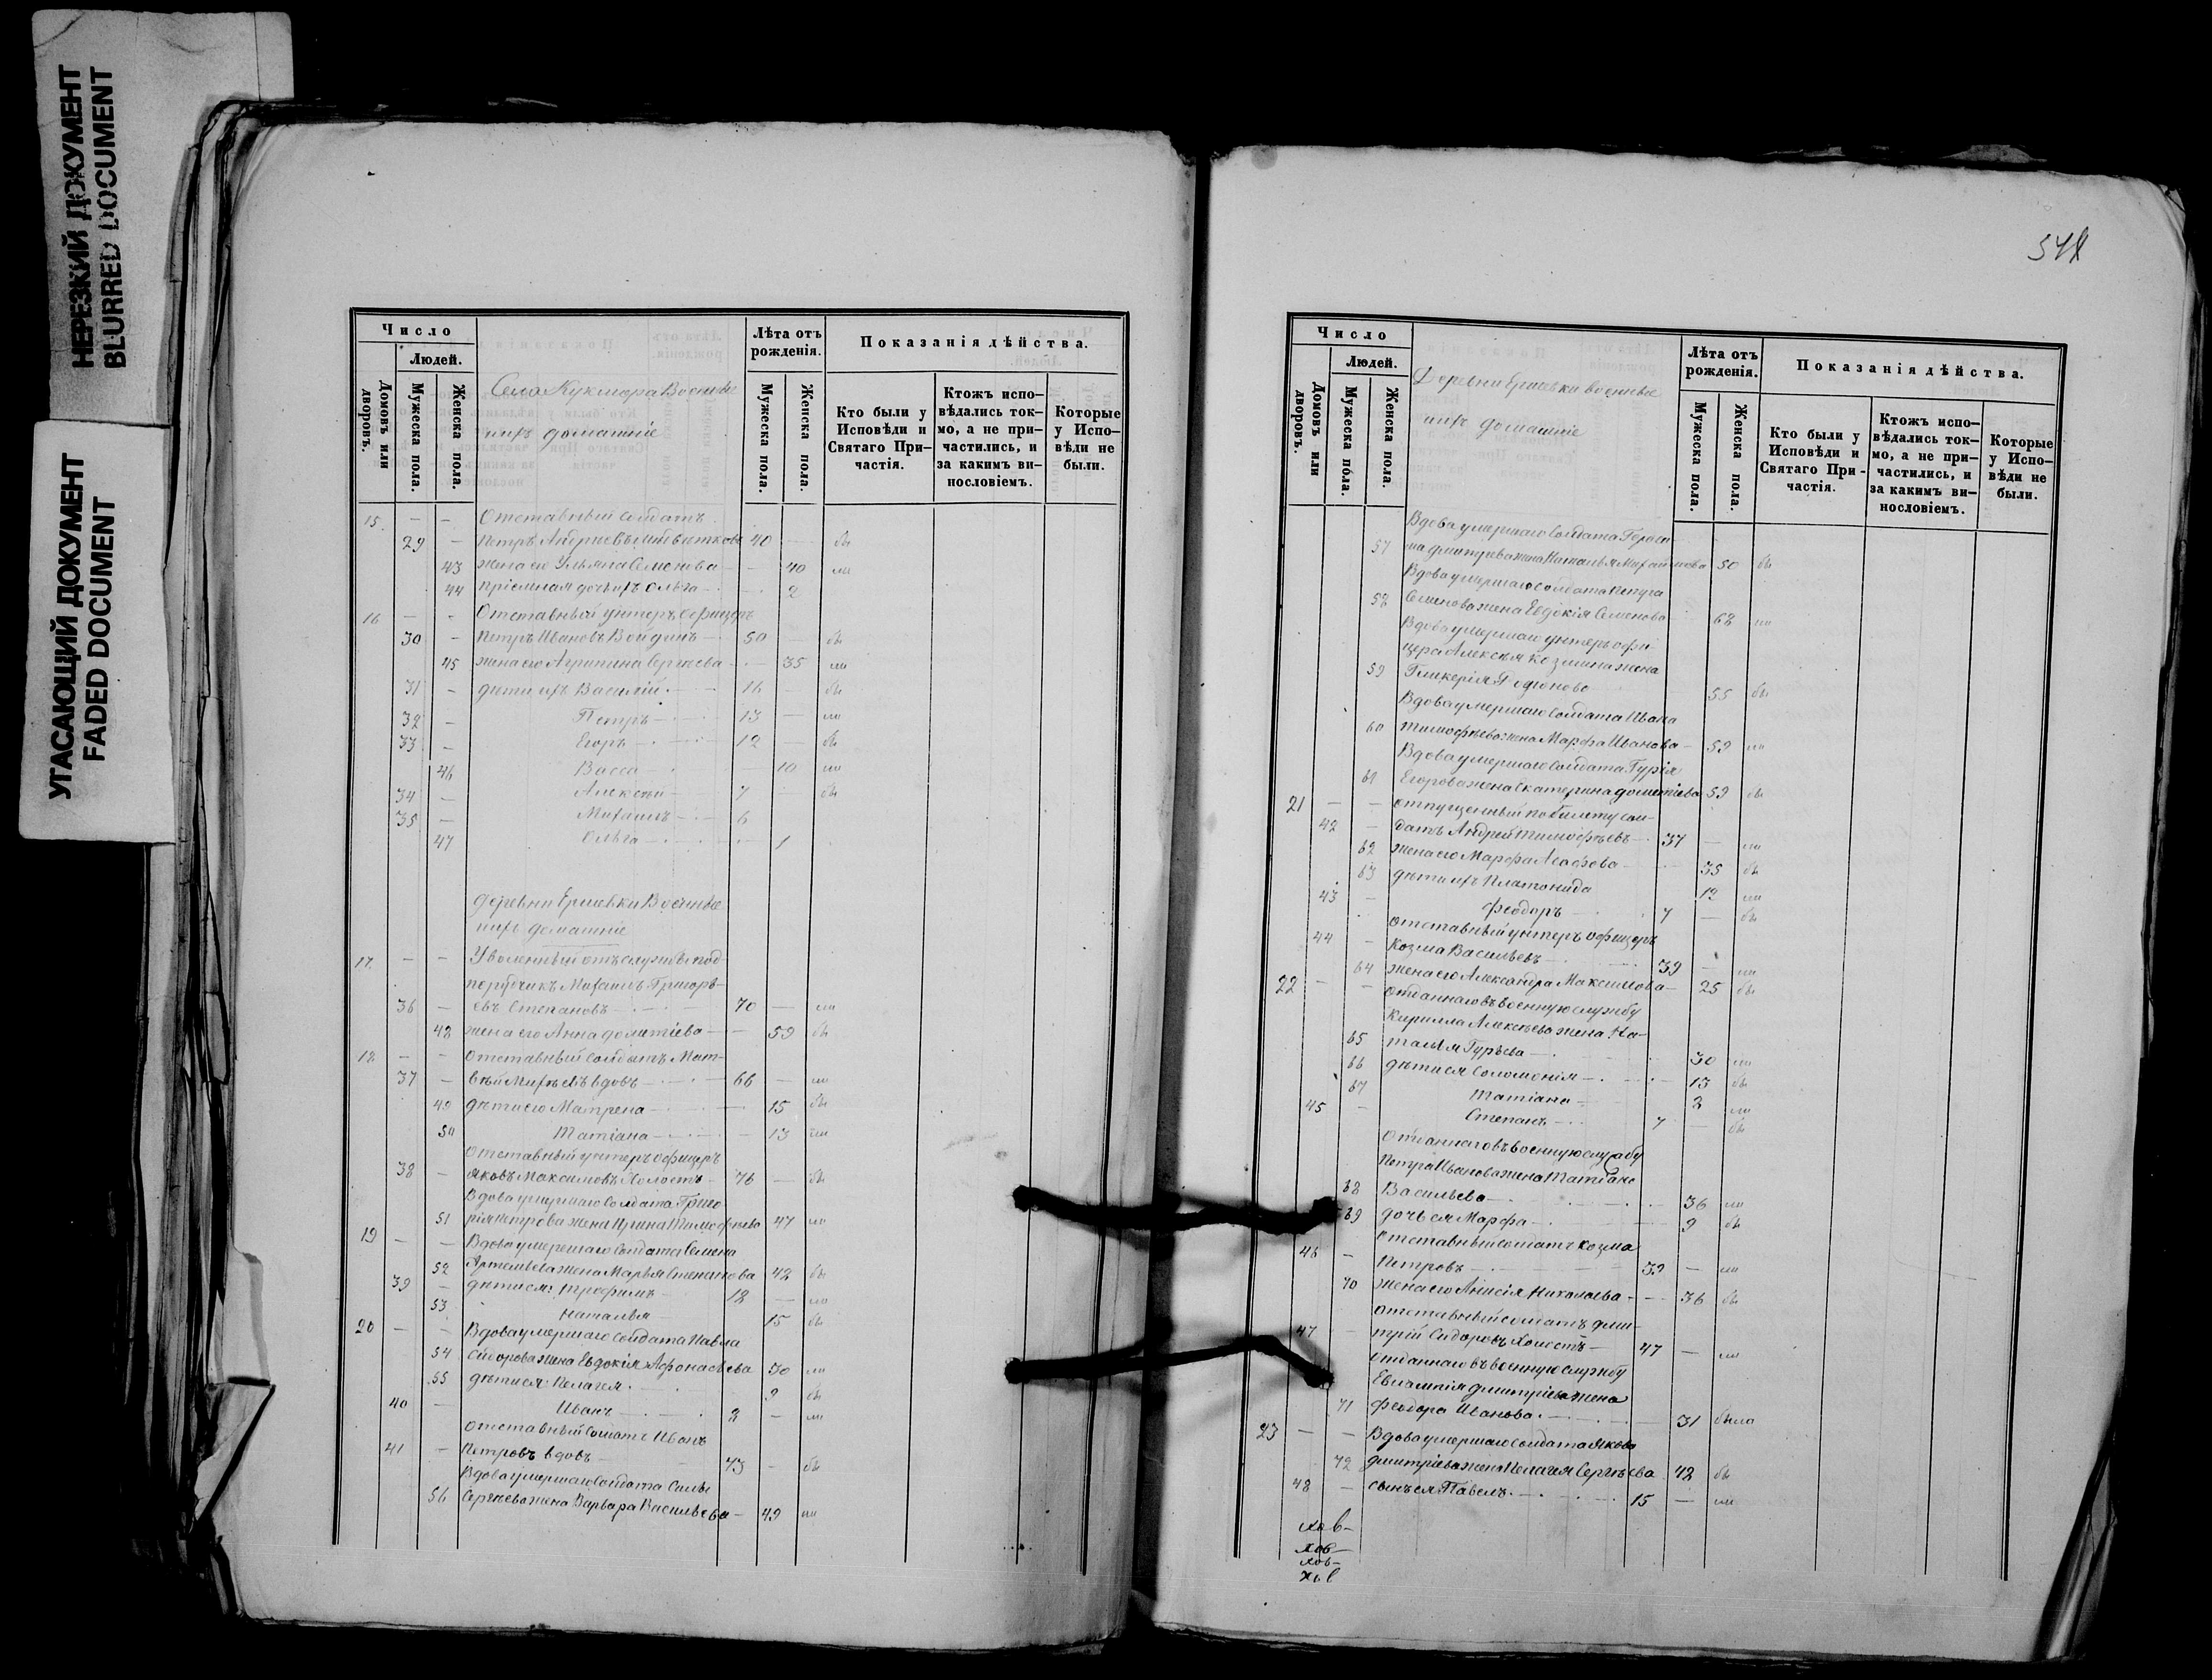 НЕРЕЗКИЙ ДОКУМЕНТ
BLURRED DOCUMENT
УГАСАЮЩИЙ ДОКУМЕНТ
FADED DOCUMENT
Число
Людей.
Домовъ или дворовъ.
Мужеска пола.
Женска пола.
Села Кукмора Военные
ихъ домашніе
Лѣта отъ рожденія.
Мужеска пола.
Женска пола.
Показанія дѣйства.
Кто были у Исповѣди и Святаго При-частія.
Ктожъ испо-вѣдались ток-мо, а не при-частились, и за какимъ ви-нословіемъ.
Которые у Испо-вѣди не были.
15 — — Отставный солдатъ
29 — Петръ Андреевъ 40 — бы
43 жена его Ульяна Семенова — 40 ли
44 пріемная дочь ихъ Ольга — 2
16 — - Отставный унтеръ офицеръ
30 - Петръ Ивановъ Войдинъ — 50 — бы
45 жена его Агрипина Сергѣева — 35 ли
31 - дѣти ихъ Василій — 16 — бы
32 — Петръ — 13 — ли
33 — Егоръ — 12 — бы
46 Васса — 10 ли
34 — Алексѣй — 7 — бы
35 — Михаилъ — 6
47 Ольга — 1
Деревни Ершевки Военные
ихъ домашніе
17 — — Уволенный отъ службы под-
порутчикъ Михаилъ Григорь-
36 — евъ Степановъ — 70 — ли
48 жена его Анна Дометіева — 59 бы
18 — — Отставный солдатъ Мат-
37 — вѣй Михѣевъ вдовъ — 66 — ли
49 дѣти его Матрена — 15 бы
50 Татіана — 13 ли
Отставный унтеръ офицеръ
38 — Яковъ Максимовъ холостъ — 76 — бы
Вдова умершаго солдата Григо-
51 рія Петрова жена Ирина Тимофѣева 47 ли
19 — — Вдова умершаго солдата Семена
52 Артемьева жена Марья Степанова 42 бы
39 — дѣти ея: Трофимъ 18 — ли
53 Наталья — 15 бы
20 — — Вдова умершаго солдата Павла
54 Сидорова жена Евдокія Афонасьева 50 ли
55 дѣти ея: Пелагея — 9 бы
40 — Иванъ — 2 — ли
Отставный солдатъ Иванъ
41 — Петровъ вдовъ — 73 — бы
Вдова умершаго солдата Силы
56 Сергѣева жена Варвара Васильева — 49 ли
Число
Людей.
Домовъ или дворовъ.
Мужеска пола.
Женска пола.
Деревни Ершевки военные
ихъ домашніе
Лѣта отъ рожденія.
Мужеска пола.
Женска пола.
Показанія дѣйства.
Кто были у Исповѣди и Святаго При-частія.
Ктож испо-вѣдались ток-мо, а не при-частились, и за какимъ ви-нословіемъ.
Которые у Испо-вѣди не были.
Вдова умершаго солдата Гераси-
57 ма Дмитрева жена Наталья Михайлова 50 бы
Вдова умершаго солдата Петра
58 Семенова жена Евдокія Семенова 68 ли
Вдова умершаго унтеръ офи-
цера Алексѣя Козмина жена
59 Гликерія 55 бы
Вдова умершаго солдата Ивана
60 Тимофѣева жена Марфа Иванова — 59 ли
Вдова умершаго солдата Гурія
61 Егорова жена Екатерина Дометіева 59 бы
21 — — отпущенный по билету сол-
42 — датъ Андрей Тимофѣевъ — 37 — ли
62 жена его Марфа Агафова — 35 бы
63 дѣти ихъ Платонида 12 ли
43 — Феодоръ — 7 — бы
отставный унтеръ офицеръ
44 — Козма Васильевъ — 39 — ли
64 жена его Александра Максимова — 25 бы
22 — — отданнаго въ военную службу
Кирилла Алексѣева жена На-
65 талья Гурьева — 30 ли
66 дѣти ея Соломонія — 13 бы
67 Татіана — 2 ли
45 — Степанъ — 7 — бы
Отданнаго въ военную службу
Петра Иванова жена Татіана
68 Васильева — 36 ли
69 дочь ея Марфа — 9 бы
Отставный солдатъ Козма
46 — Петровъ — 39 — ли
70 жена его Анисія Николаева — 36 бы
Отставный солдатъ Дми-
47 — трій Сидоровъ холостъ — 47 — ли
Отданнаго въ военную службу
Евлампія Дмитріева жена
71 Феодора Иванова — 31 была
23 — — Вдова умершаго солдата Якова
72 Дмитріева жена Пелагея Сергѣева 42 бы
48 — сынъ ея Павелъ — 15 — ли